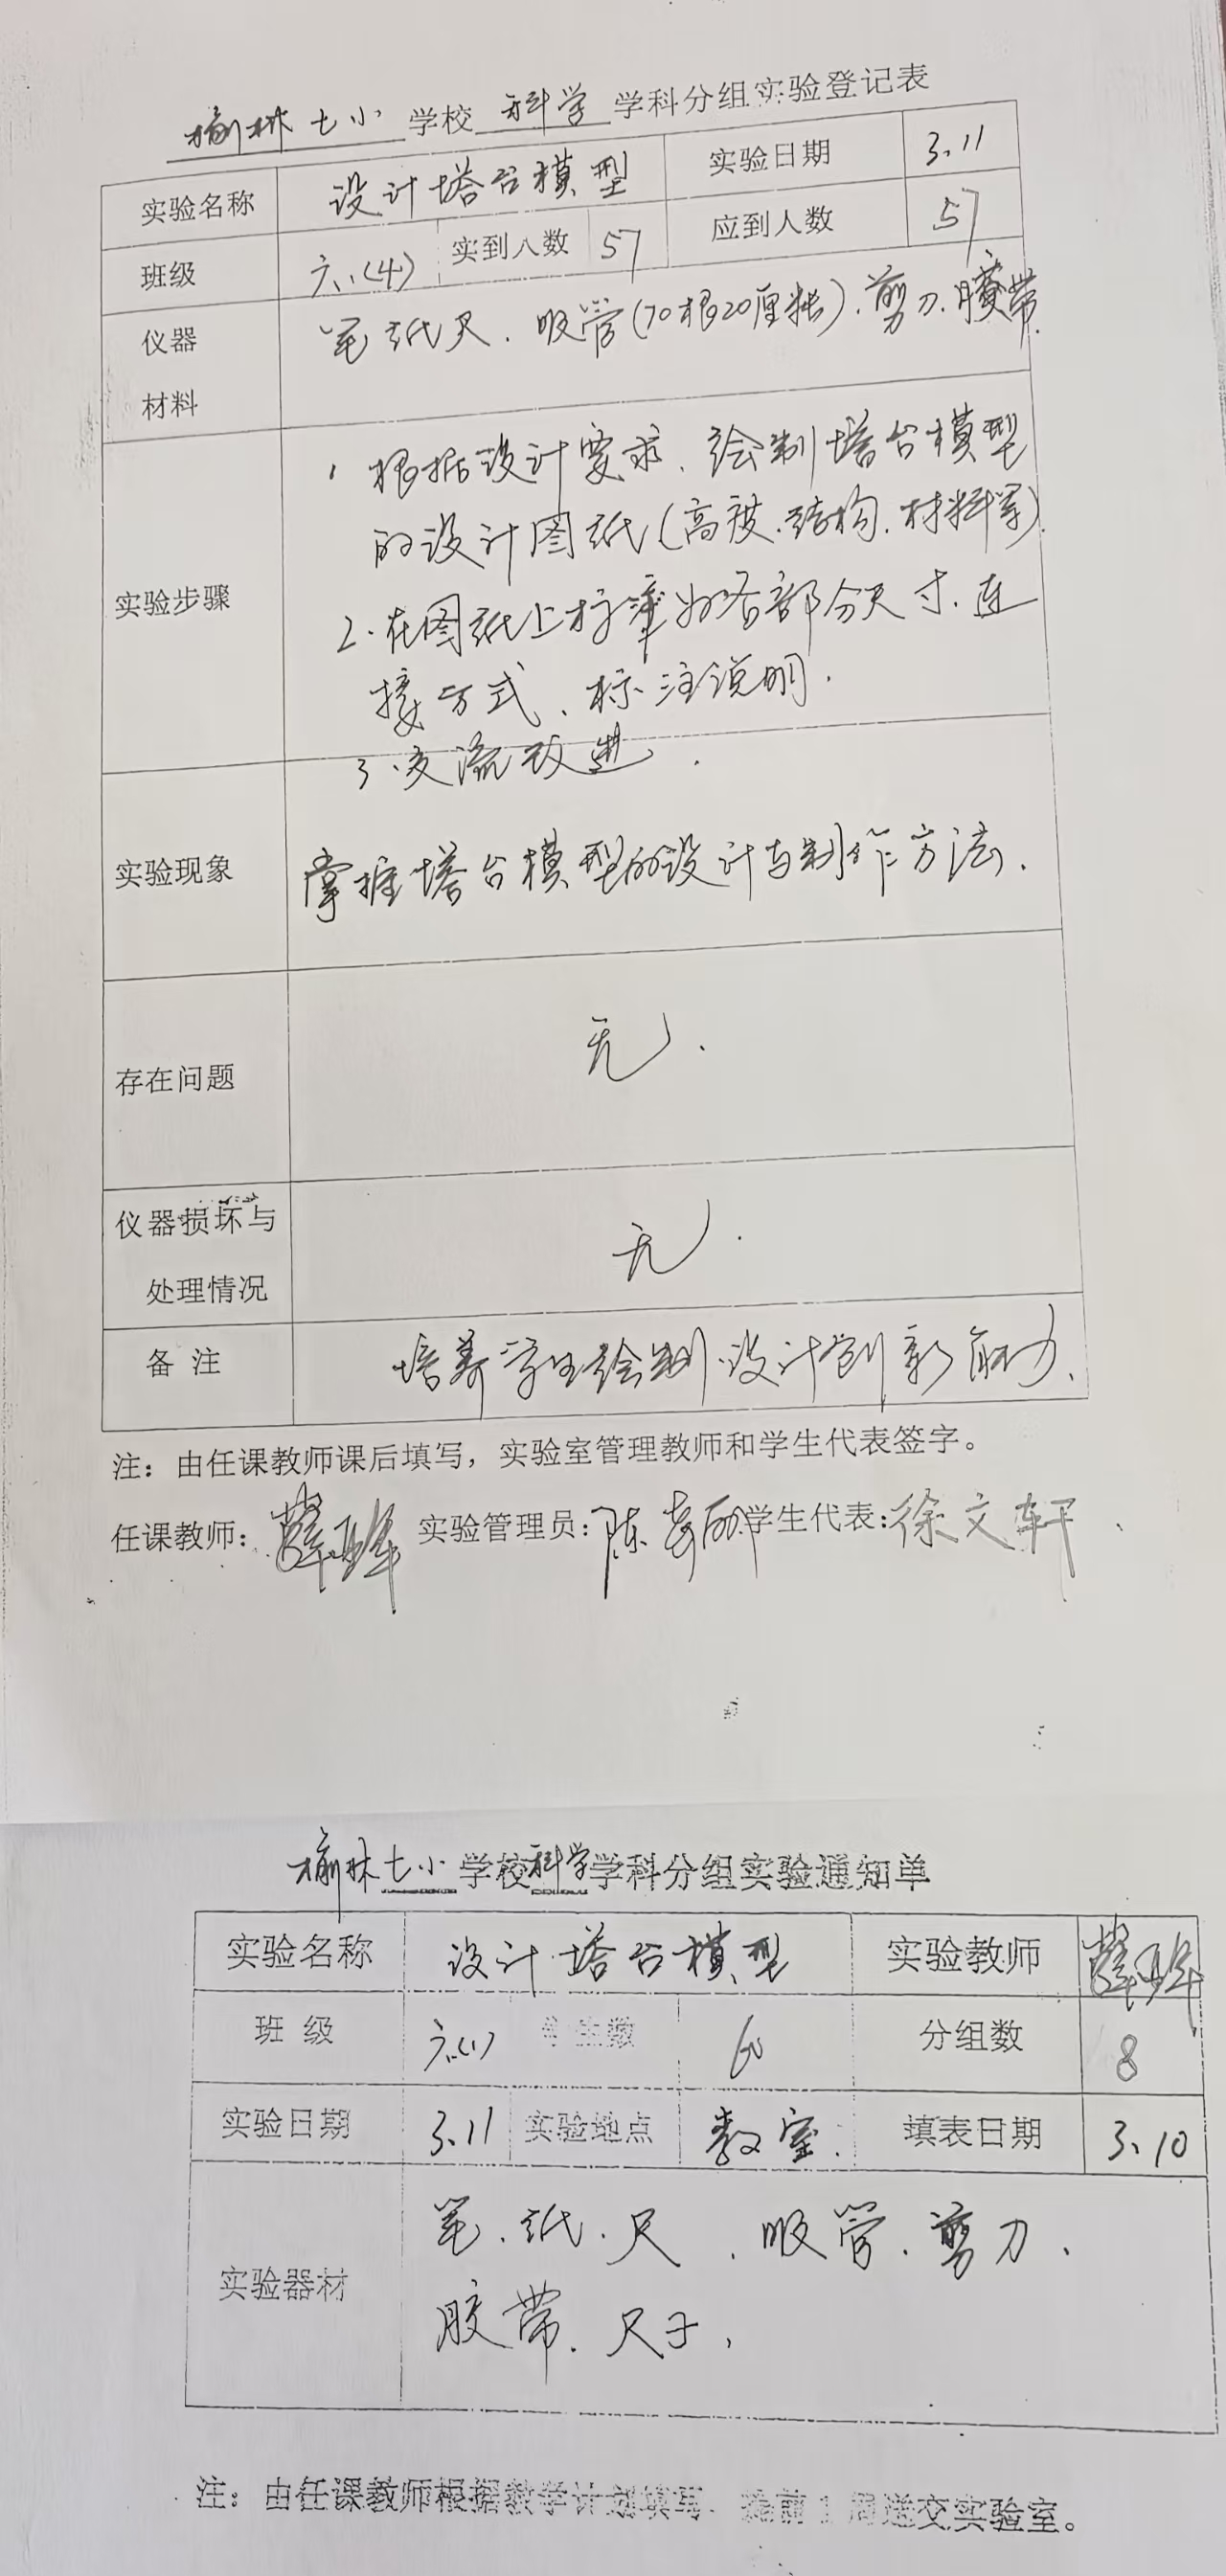 榆林七小 学校 科学 学科分组实验登记表
实验名称 设计塔台模型 实验日期 3.11
班级 六(4) 实到人数 57 应到人数 57
仪器材料 笔 纸 尺、吸管(70根20厘米)、剪刀、胶带
实验步骤
1 根据设计要求、绘制塔台模型
的设计图纸(高度、结构、材料等)
2、在图纸上标注各部分尺寸、连
接方式、标注说明.
3、交流改进.
实验现象 掌握塔台模型的设计与制作方法.
存在问题 无.
仪器损坏与处理情况 无.
备注 培养学生绘制、设计创新能力、
注：由任课教师课后填写，实验室管理教师和学生代表签字。
任课教师： 实验管理员： 学生代表：徐文轩
榆林七小 学校 科学 学科分组实验通知单
实验名称 设计塔台模型 实验教师
班级 六(1) 学生数 60 分组数 8
实验日期 3.11 实验地点 教室. 填表日期 3.10
实验器材 笔、纸、尺、吸管、剪刀、
胶带、尺子、
注：由任课教师根据教学计划填写，提前1周送交实验室。